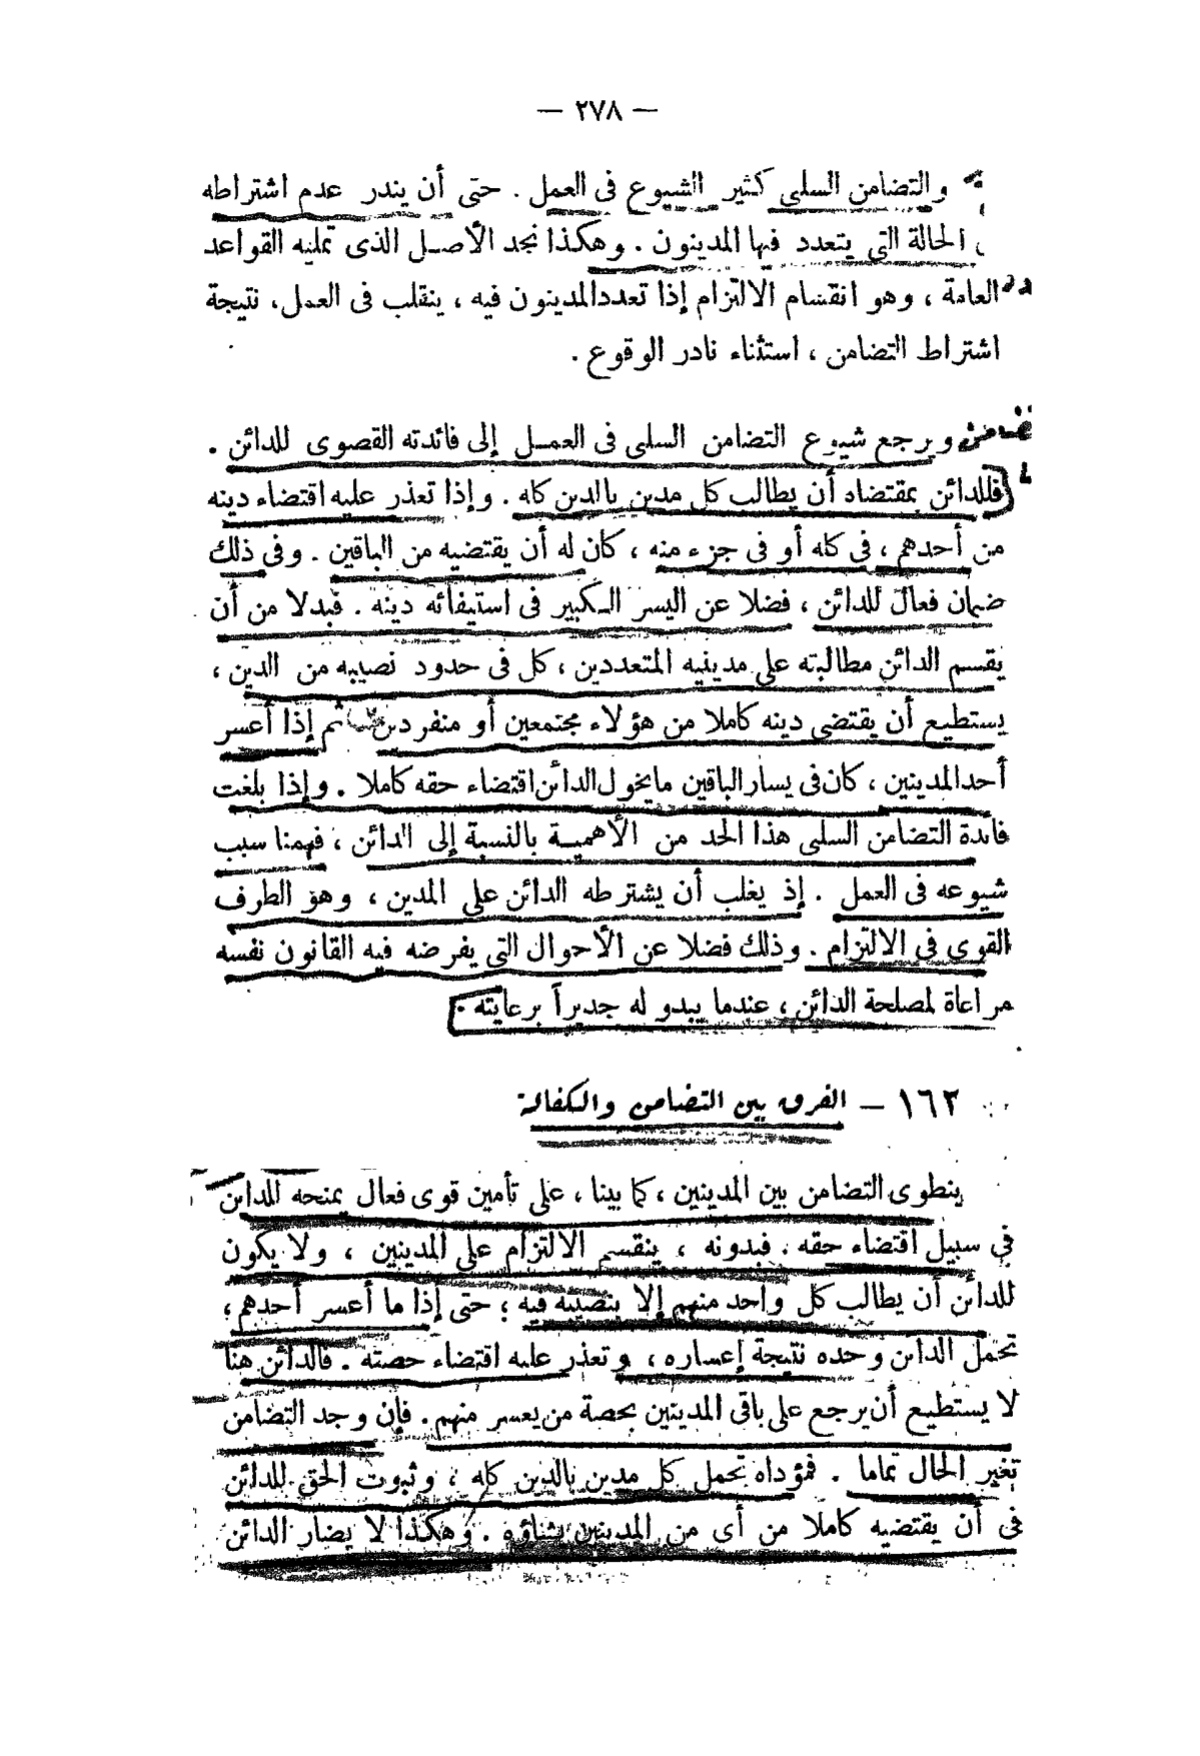 — ٢٧٨ —
والتضامن السلبى كثير الشيوع فى العمل . حتى أن يندر عدم اشتراطه
الحالة التى يتعدد فيها المدينون . وهكذا نجد الأصل الذى تمليه القواعد
العامة ، وهو انقسام الالتزام إذا تعدد المدينون فيه ، ينقلب فى العمل ، نتيجة
اشتراط التضامن ، استثناء نادر الوقوع .
ويرجع شيوع التضامن السلبى فى العمل إلى فائدته القصوى للدائن .
فللدائن بمقتضاه أن يطالب كل مدين بالدين كله . وإذا تعذر عليه اقتضاء دينه
من أحدهم ، فى كله أو فى جزء منه ، كان له أن يقتضيه من الباقين . وفى ذلك
ضمان فعال للدائن ، فضلا عن اليسر الكبير فى استيفائه دينه . فبدلا من أن
يقسم الدائن مطالبته على مدينيه المتعددين ، كل فى حدود نصيبه من الدين ،
يستطيع أن يقتضى دينه كاملا من هؤلاء مجتمعين أو منفردين ثم إذا أعسر
أحد المدينين ، كان فى يسار الباقين ما يخول الدائن اقتضاء حقه كاملا . وإذا بلغت
فائدة التضامن السلبى هذا الحد من الأهمية بالنسبة إلى الدائن ، فهمنا سبب
شيوعه فى العمل . إذ يغلب أن يشترطه الدائن على المدين ، وهو الطرف
القوى فى الالتزام . وذلك فضلا عن الأحوال التى يفرضه فيه القانون نفسه
مراعاة لمصلحة الدائن ، عندما يبدو له جديراً برعايته .
١٦٢ – الفرق بين التضامن والكفالة
ينطوى التضامن بين المدينين ، كما بينا ، على تأمين قوى فعال يمنحه للدائن
فى سبيل اقتضاء حقه . فبدونه ، ينقسم الالتزام على المدينين ، ولا يكون
للدائن أن يطالب كل واحد منهم إلا بنصيبه فيه ؛ حتى إذا ما أعسر أحدهم ،
تحمل الدائن وحده نتيجة إعساره ، وتعذر عليه اقتضاء حصته . فالدائن هنا
لا يستطيع أن يرجع على باقى المدينين بحصة من يعسر منهم . فإن وجد التضامن
تغير الحال تماما . فمؤداه تحمل كل مدين بالدين كله ، وثبوت الحق للدائن
فى أن يقتضيه كاملا من أى من المدينين يشاؤه . وهكذا لا يضار الدائن